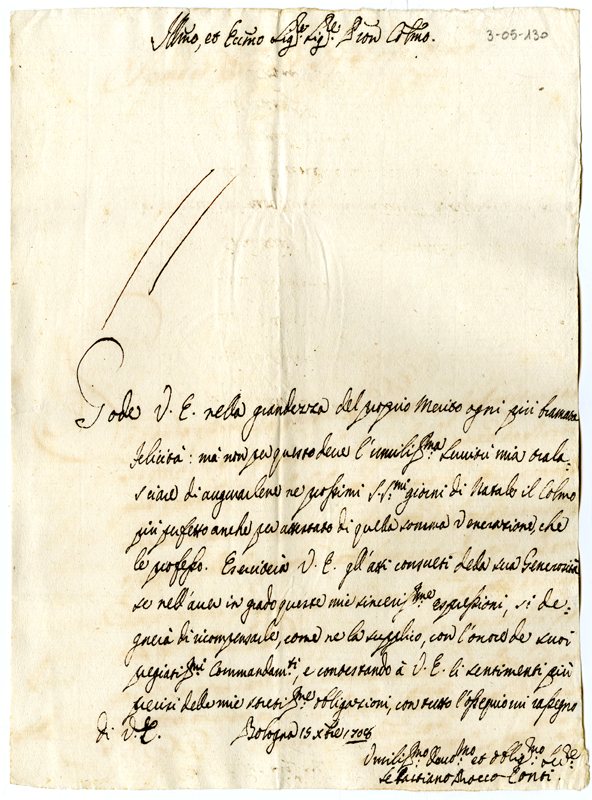 Illmo, et Eccmo Sigre Sigre Pron Colmo.
3-05-130
Gode V. E. nella grandezza del proprio Merito ogni più bramata
felicità: mà non per questo deve l'umilissma Servitù mia trala-
sciare di augurarlene ne prossimi S.S.mi giorni di Natale il Colmo
più perfetto anche per attestato di quella somma venerazione, che
le professo. Eserciti V. E. gl'atti consueti della sua Generosità
se nell'aver in grado queste mie sincerissme espressioni, si de-
gnerà di ricompensarle, come ne la supplico, con l'onore de suoi
pregiatissmi Commandamti, e contestando à V. E. li sentimenti più
precisi delle mie strettissme obligazioni, con tutto l'ossequio mi rassegno
di V. E. Bologna 15 Xbre 1708
Umilissmo Devmo et obligmo Serre
Sebastiano Rocco Conti.